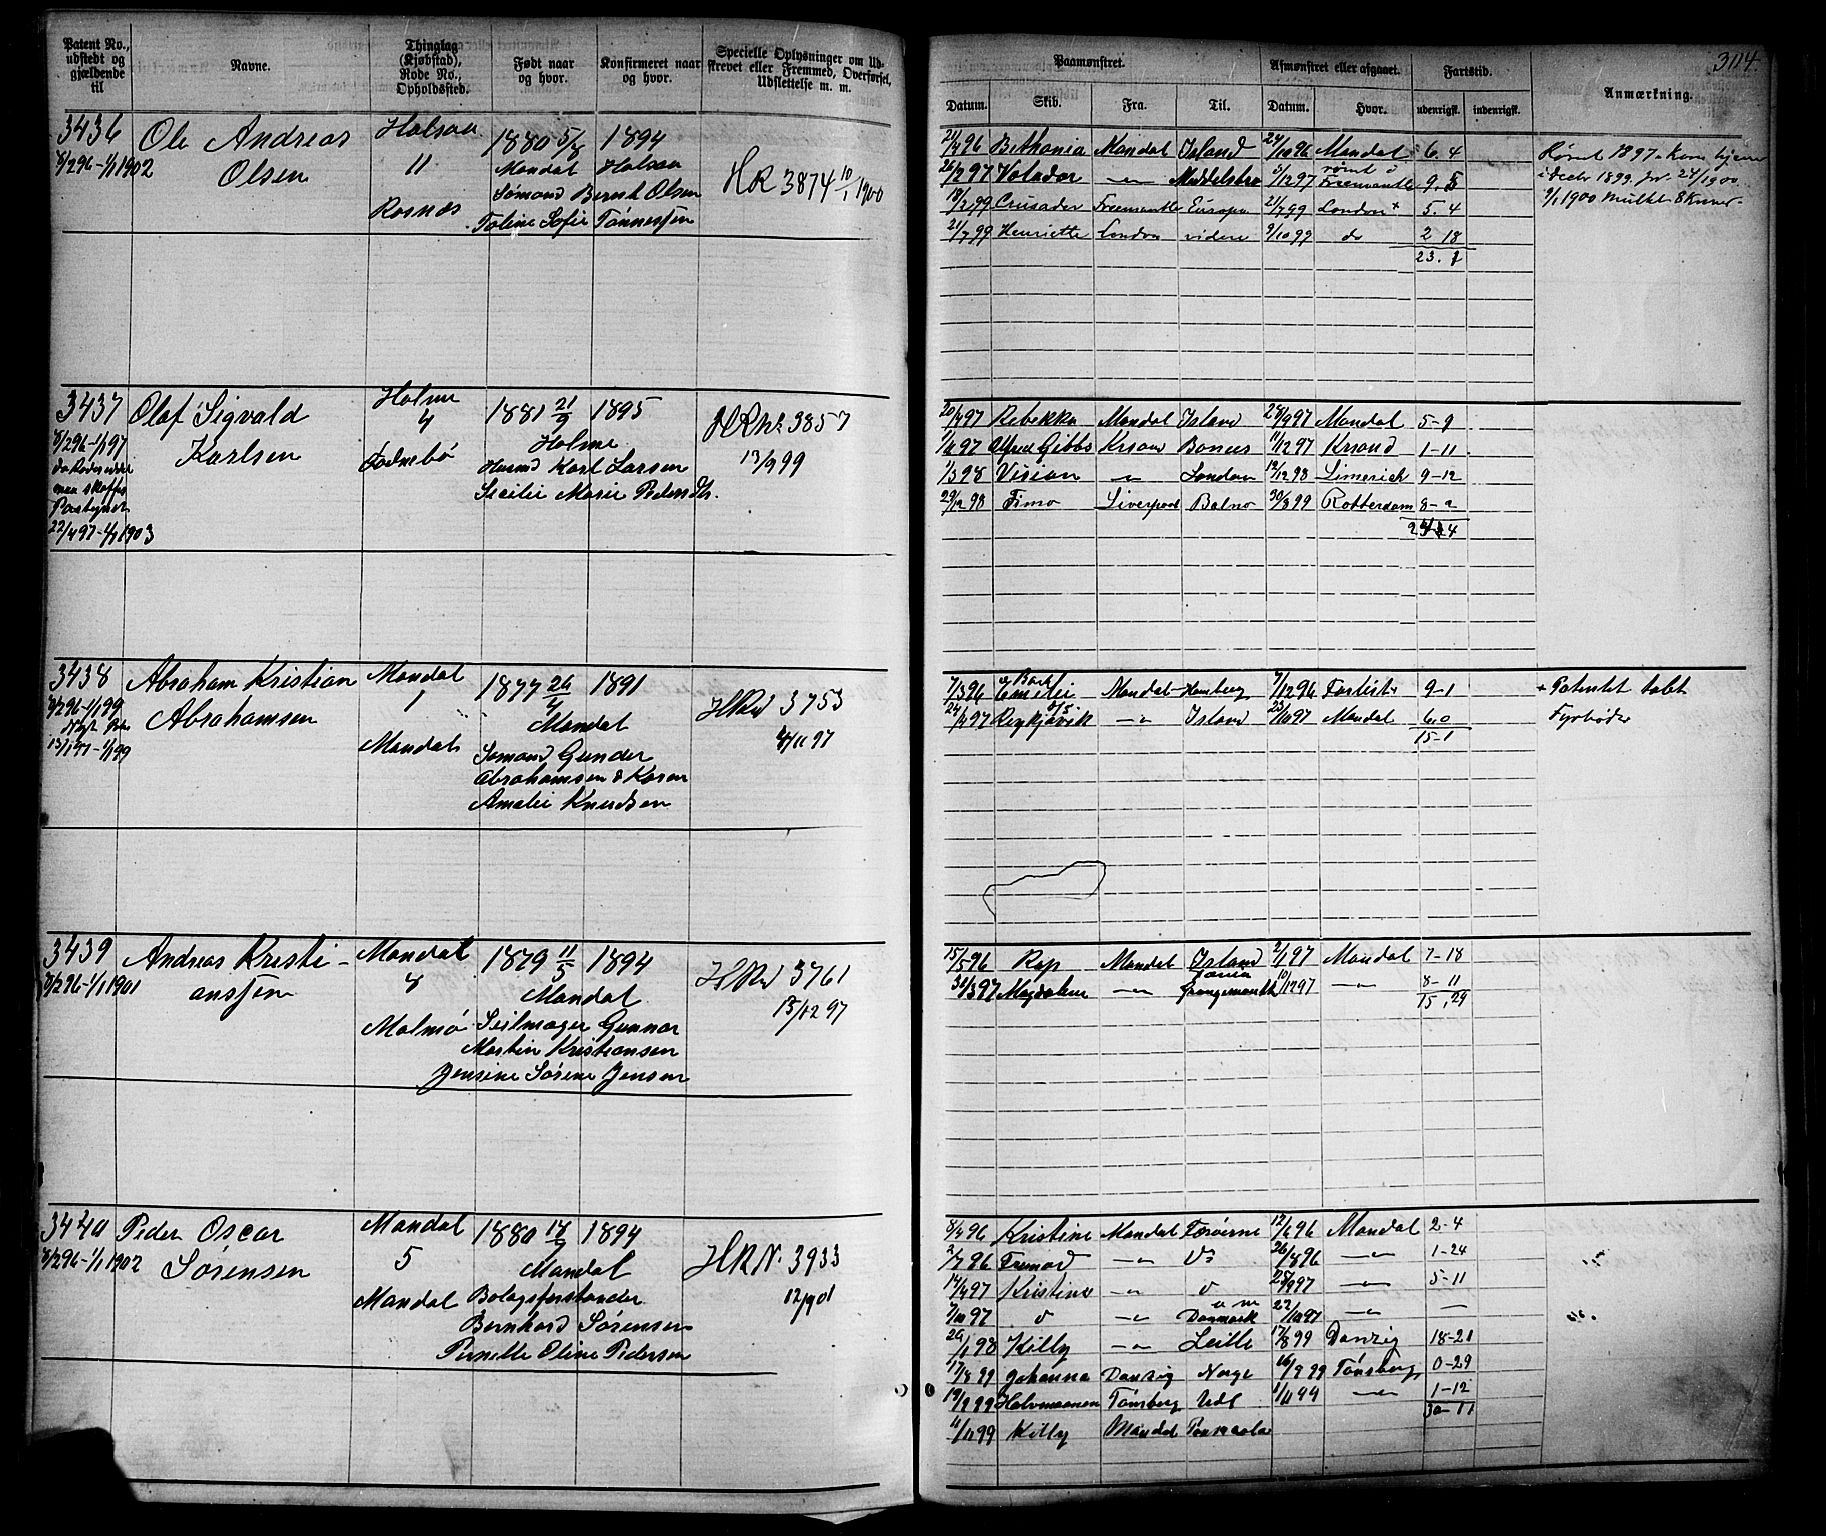 Patent No., udstedt og gjældende til
Navne.
Thinglag (Kjøbstad), Rode No., Opholdssted.
Født naar og hvor.
Konfirmeret naar og hvor.
Specielle Oplysninger om Udskrevet eller Fremmed, Overførsel, Udslettelse m. m.
Paamønstret.
Afmønstret eller afgaaet.
Fartstid.
Anmærkning.
Datum. Skib. Fra. Til. Datum. Hvor. udenrigsk. indenrigsk.
3436 Ole Andreas Halsaa 1880 5/8 1894
8/2 96-1/1 1902 Olsen 11 Mandal Halsaa
Sømand Bernt Olsen HR 3874 10/1 1900
Rosnæs Toline Sofie Tønnessen
21/4 96 Bethania Mandal Island 24/10 96 Mandal 6.4 Rømt 1897. Kom hjem
26/2 97 Valador -"- Middelsbro 9/12 97 rømt i Freemantle 9.5 i Decbr 1899. 24/1 1900
18/2 99 Crusader Freemantle Europa 21/7 99 London + 5.4 9/1 1900 mulkt 8 kroner.
21/7 99 Henriette London videre 9/10 99 do 2 18
23.1
3437 Olaf Sigvald Holme 1881 21/9 1895 HR No 3857
8/2 96-1/1 97 Karlsen 4 Holme 13/9 99
Todnebø Husmd Karl Larsen
maa skaffes Secilie Marie Pedersdtr.
22/4 97-1/1 1903
20/4 97 Rebekka Mandal Island 28/9 97 Mandal 5-9
1/11 97 Alfred Gibbs Krsand 11/12 97 Krsand 1-11
1/3 98 Vivian " London 12/12 98 Limerick 9-12
29/12 98 Timo Liverpool 30/8 99 Rotterdam 8-2
24-4
3438 Abraham Kristian Mandal 1877 26/4 1891 HR No 3753
8/2 96-1/1 99 Abrahamsen 1 Mandal 4/11 97
13/1 97-1/1 99 Mandal Sømand Gunder
Abrahamsen & Karen
Amalie Knudsen
7/3 96 Bark Emilie Mandal Hamburg 7/12 96 9-1 + Patentet tabt
24/4 97 Reykjavik D/S -"- Island 23/10 97 Mandal 6.0 Fyrbøder
15-1
3439 Andreas Kristi- Mandal 1879 11/5 1894 HR No 3761
8/2 96-1/1 1901 anssen 8 Mandal 15/12 97
Malmø Seilmager Gunnar
Martin Kristiansen
Jensine Sørine Jensen
15/5 96 Rap Mandal Island 2/1 97 Mandal 7-18
31/3 97 Magdalene -"- Grangemouth 10/12 97 -"- 8-11
15,29
3440 Peder Oscar Mandal 1880 14/9 1894
8/2 96-1/1 1902 Sørensen 5 Mandal HR N. 3933
Mandal Bolagsforstander 12/9 01
Bernhard Sørensen
Pernille Oline Pedersen
8/4 96 Kristine Mandal Færøerne 12/6 96 Mandal 2-4
2/7 96 Fremad -"- Do 26/8 96 -"- 1-24
14/4 97 Kristine -"- do 25/9 97 -"- 5-11
7/10 97 do -"- Danmark 22/10 97 -"- —
29/1 98 Kelly -"- Leith 17/8 99 Danzig 18-21
17/8 99 Johanna Danzig Norge 16/9 99 Tønsberg 0-29
19/9 99 Halvmaanen Tønsberg Udl 1/11 99 -"- 1-12
30-11
11/11 99 Kelly Mandal Pensacola